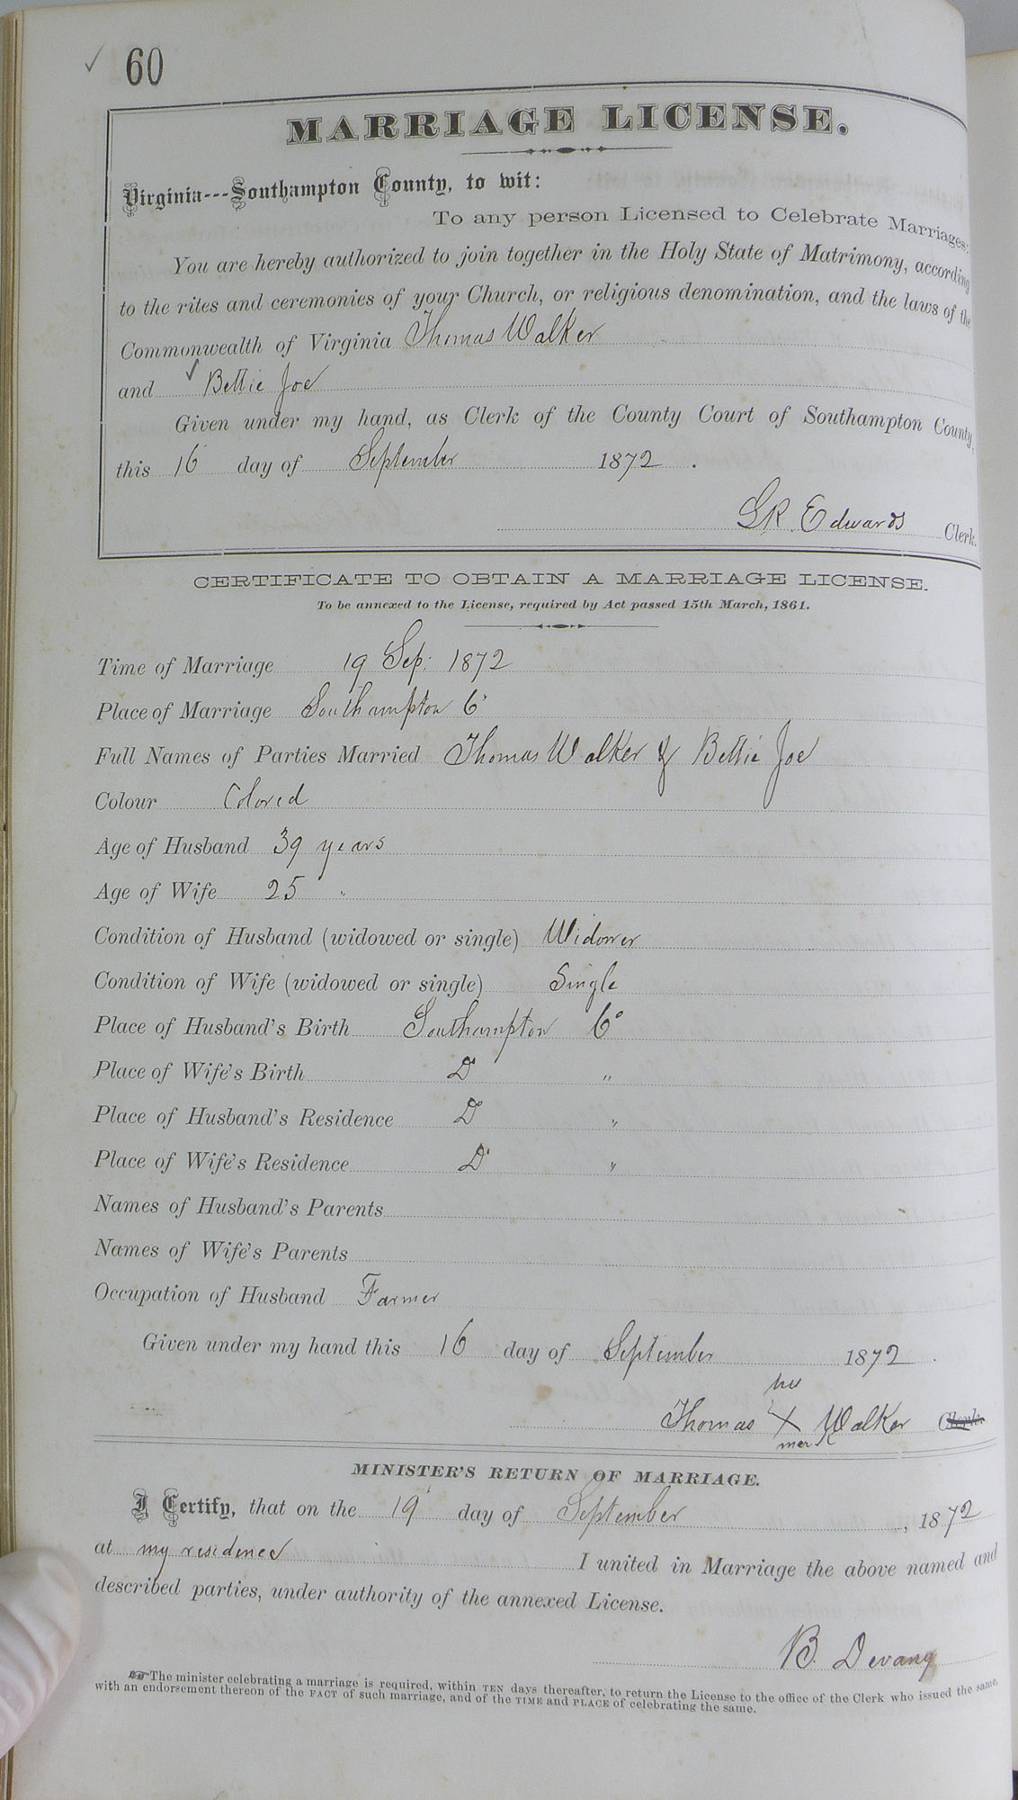 60
MARRIAGE LICENSE.
Virginia---Southampton County, to wit:
To any person Licensed to Celebrate Marriages:
You are hereby authorized to join together in the Holy State of Matrimony, according
to the rites and ceremonies of your Church, or religious denomination, and the laws of the
Commonwealth of Virginia Thomas Walker
and Bettie Joe
Given under my hand, as Clerk of the County Court of Southampton County,
this 16 day of September 1872.
LR Edwards Clerk.
CERTIFICATE TO OBTAIN A MARRIAGE LICENSE.
To be annexed to the License, required by Act passed 15th March, 1861.
Time of Marriage 19 Sep: 1872
Place of Marriage Southampton Co
Full Names of Parties Married Thomas Walker & Bettie Joe
Colour Colored
Age of Husband 39 years
Age of Wife 25 "
Condition of Husband (widowed or single) Widower
Condition of Wife (widowed or single) Single
Place of Husband's Birth Southampton Co
Place of Wife's Birth Do "
Place of Husband's Residence Do "
Place of Wife's Residence Do "
Names of Husband's Parents
Names of Wife's Parents
Occupation of Husband Farmer
Given under my hand this 16 day of September 1872.
his
Thomas X Walker Clerk.
mark
MINISTER'S RETURN OF MARRIAGE.
I Certify, that on the 19 day of September, 1872
at my residence I united in Marriage the above named and
described parties, under authority of the annexed License.
B. Devany
The minister celebrating a marriage is required, within TEN days thereafter, to return the License to the office of the Clerk who issued the same,
with an endorsement thereon of the FACT of such marriage, and of the TIME and PLACE of celebrating the same.